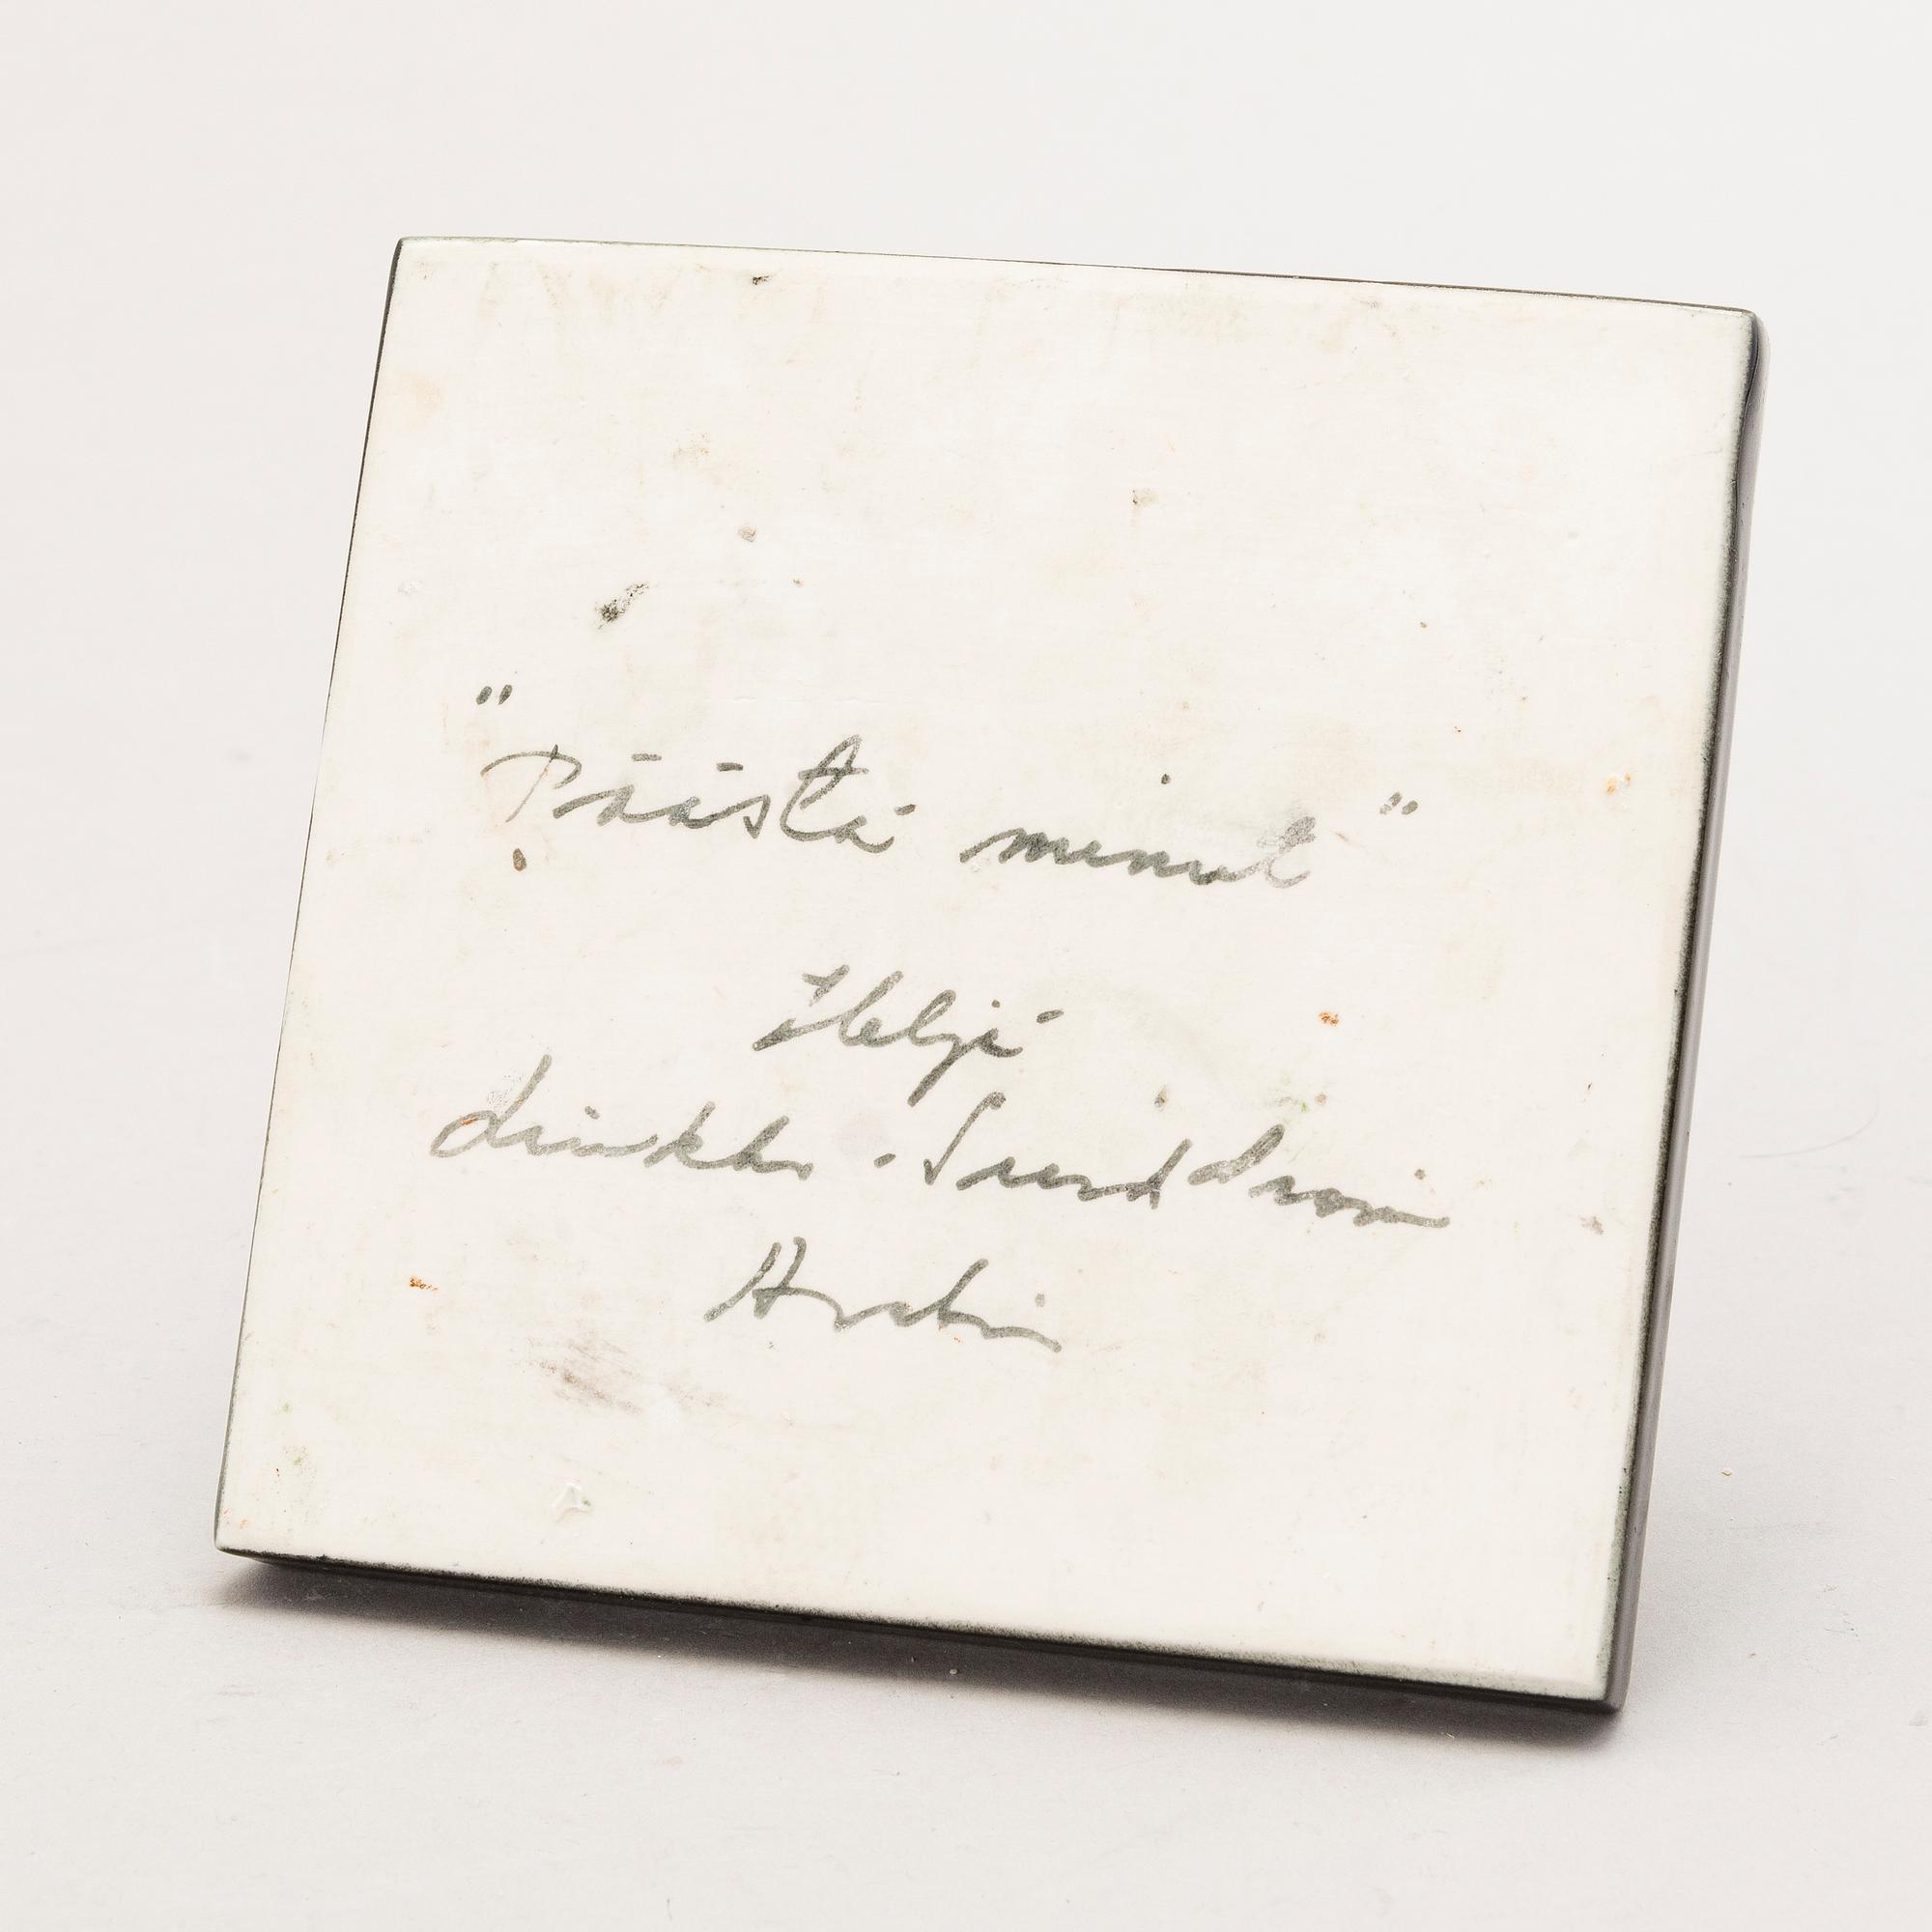 "Päästä minut"
Heljä
Liukko-Sundström
Arabia